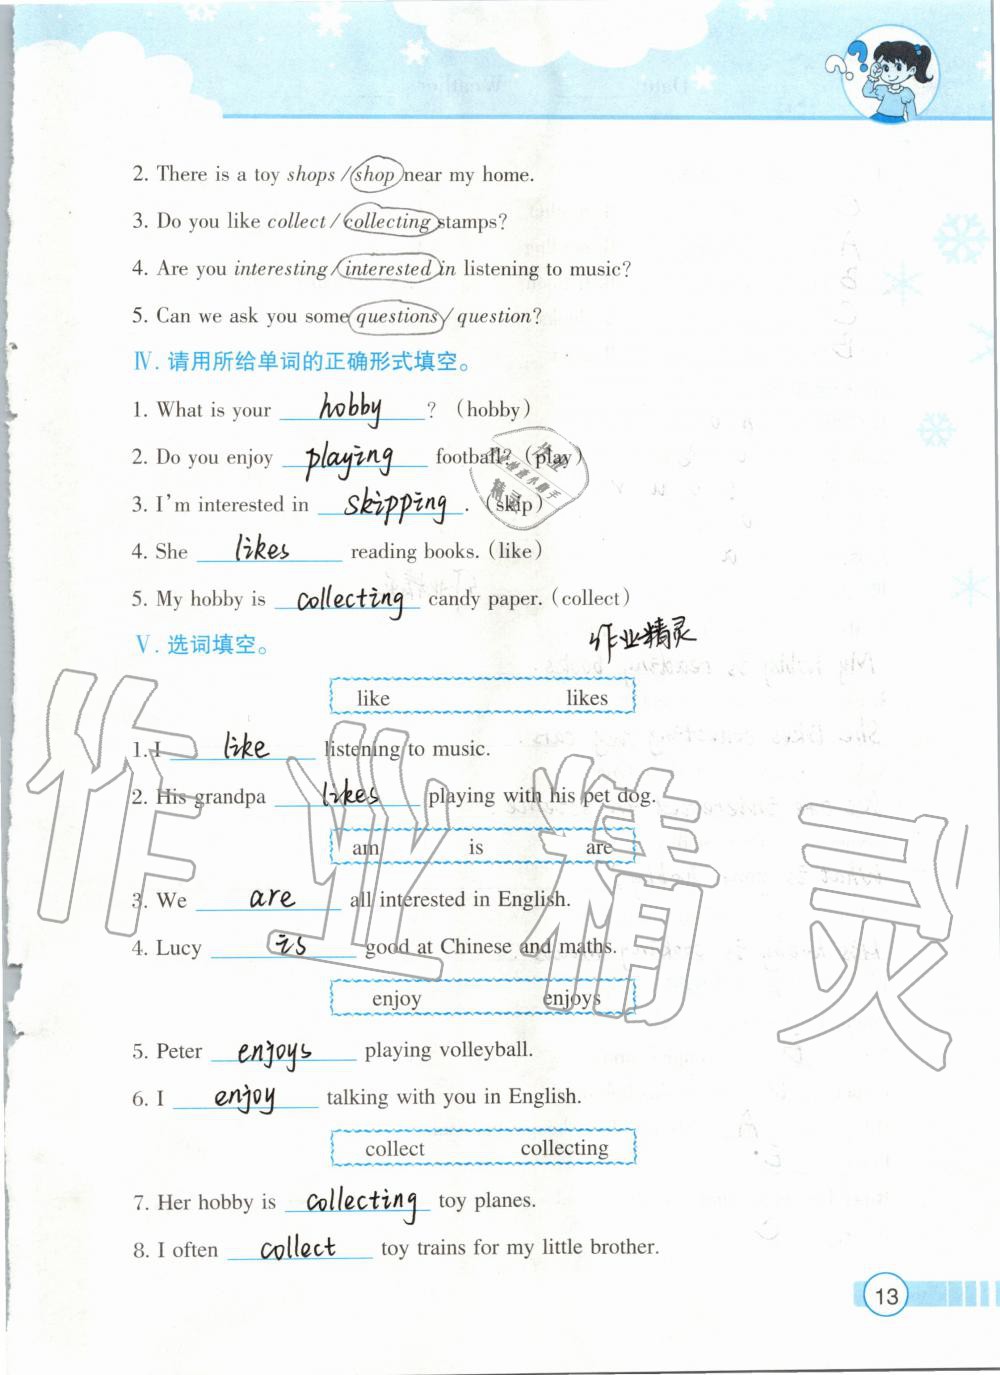 2. There is a toy shops / shop near my home.
3. Do you like collect / collecting stamps?
4. Are you interesting / interested in listening to music?
5. Can we ask you some questions / question?
Ⅳ. 请用所给单词的正确形式填空。
1. What is your hobby ? (hobby)
2. Do you enjoy playing football? (play)
3. I'm interested in skipping . (skip)
4. She likes reading books. (like)
5. My hobby is collecting candy paper. (collect)
作业精灵
Ⅴ. 选词填空。
like likes
1. I like listening to music.
2. His grandpa likes playing with his pet dog.
am is are
3. We are all interested in English.
4. Lucy is good at Chinese and maths.
enjoy enjoys
5. Peter enjoys playing volleyball.
6. I enjoy talking with you in English.
collect collecting
7. Her hobby is collecting toy planes.
8. I often collect toy trains for my little brother.
作业精灵
13